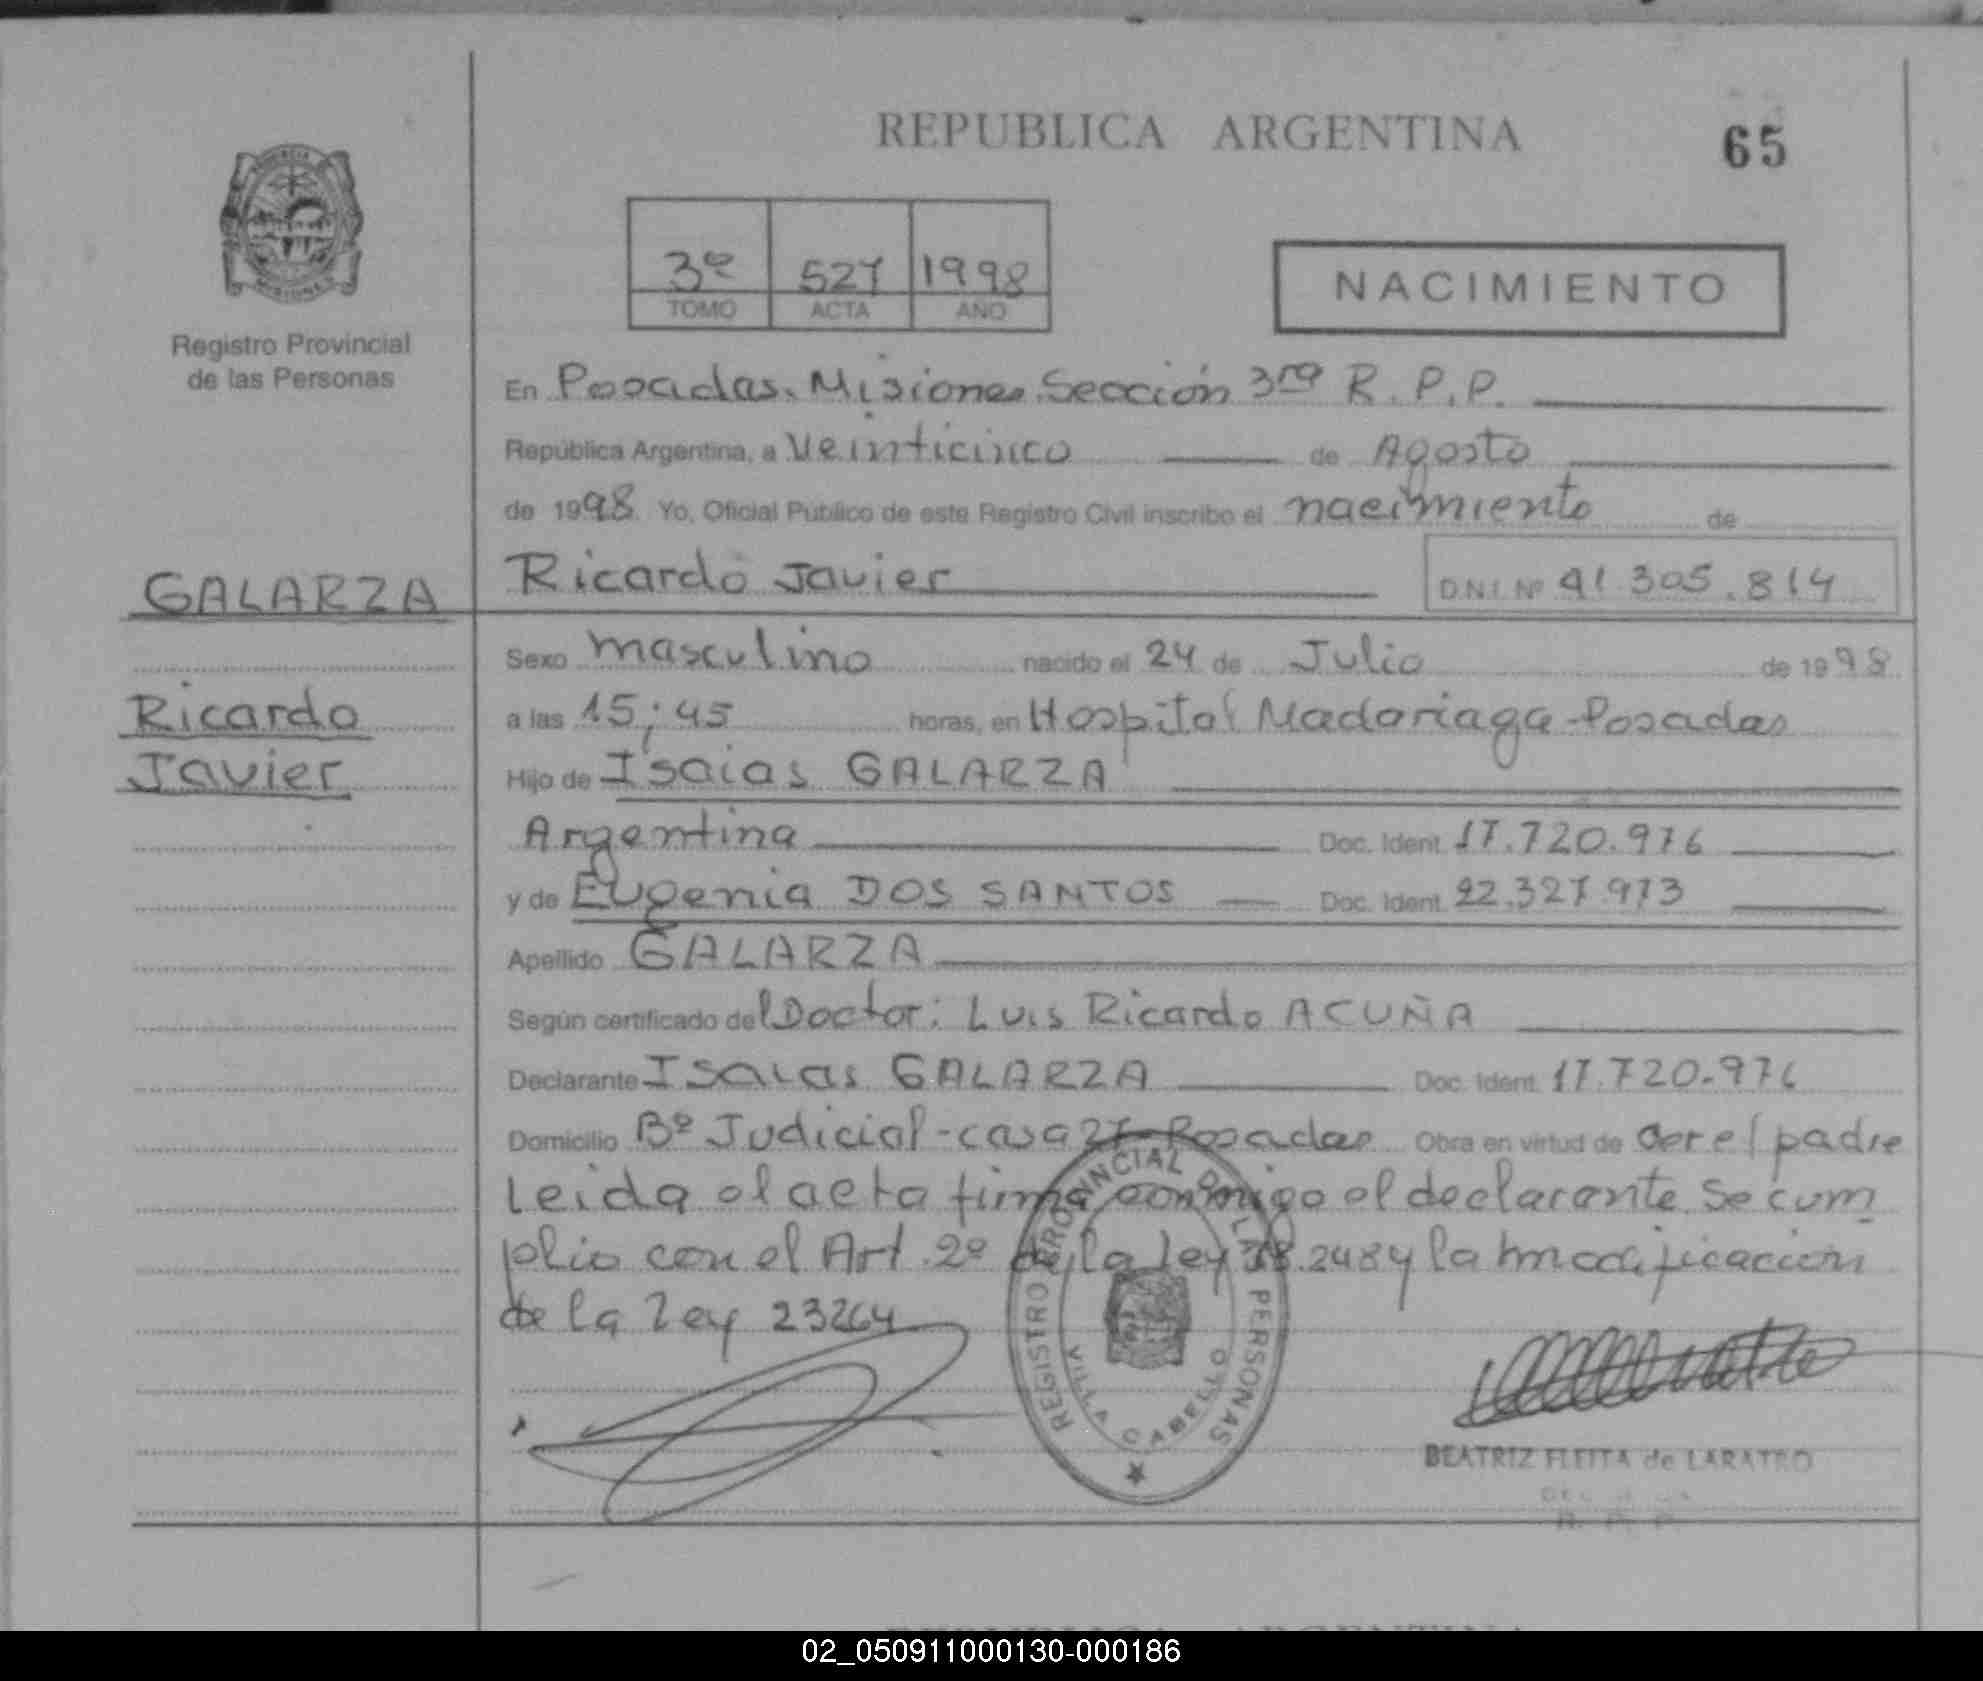 REPUBLICA ARGENTINA
65
3º 527 1998
TOMO ACTA AÑO
NACIMIENTO
MISIONES
Registro Provincial
de las Personas
En Posadas. Misiones. Sección 3ra R. P. P.
República Argentina, a Veinticinco de Agosto
de 1998. Yo, Oficial Público de este Registro Civil inscribo el nacimiento de
GALARZA
Ricardo Javier
D.N.I. Nº 41.305.814
Sexo masculino nacido el 24 de Julio de 1998
Ricardo
a las 15:45 horas, en Hospital Madariaga-Posadas
Javier
Hijo de Isaias GALARZA
Argentina Doc. Ident. 17.720.976
y de Eugenia DOS SANTOS Doc. Ident. 22.327.973
Apellido GALARZA
Según certificado del Doctor: Luis Ricardo ACUÑA
Declarante Isaias GALARZA Doc. Ident. 17.720.976
Domicilio Bº Judicial-casa 27-Posadas Obra en virtud de ser el padre
Leida el acta firma conmigo el declarante Se cum
plio con el Art. 2º de la Ley 18.248 y la modificacion
de la Ley 23264
REGISTRO PROVINCIAL DE LAS PERSONAS
VILLA CABELLO
BEATRIZ FLEITA de LARATRO
R. P. P.
REPUBLICA ARGENTINA
02_050911000130-000186